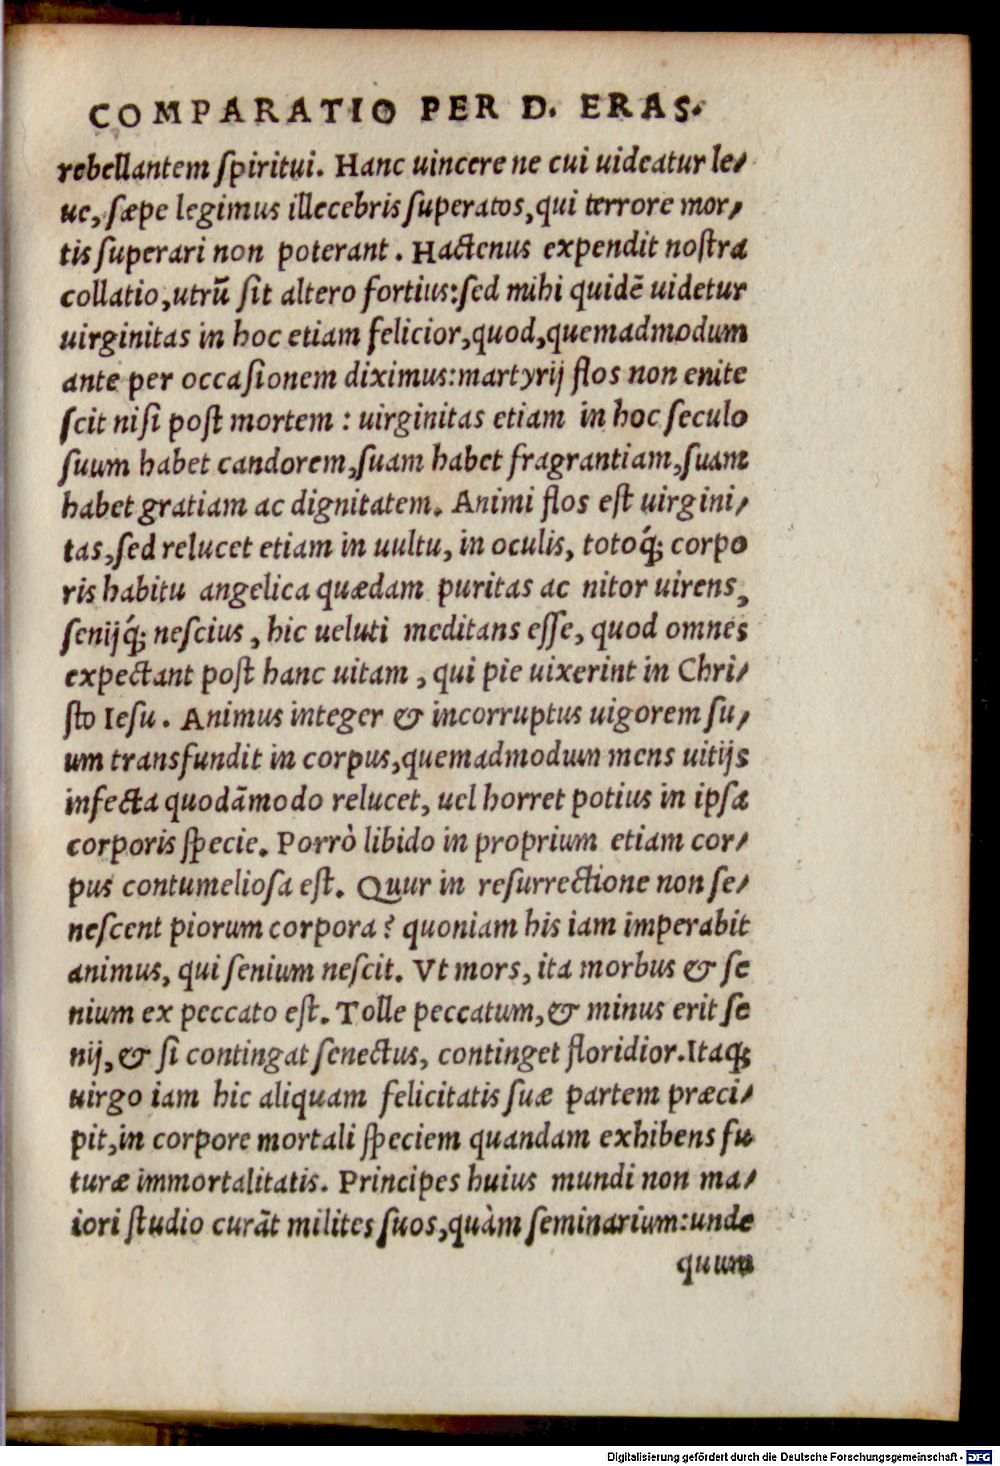 COMPARATIO PER D. ERAS.
rebellantem ſpiritui. Hanc uincere ne cui uideatur le⸗
ue, ſæpe legimus illecebris ſuperatos, qui terrore mor⸗
tis ſuperari non poterant. Hactenus expendit noſtra
collatio, utrū ſit altero fortius: ſed mihi quidē uidetur
uirginitas in hoc etiam felicior, quod, quemadmodum
ante per occaſionem diximus: martyrij flos non enite
ſcit niſi poſt mortem: uirginitas etiam in hoc ſeculo
ſuum habet candorem, ſuam habet fragrantiam, ſuam
habet gratiam ac dignitatem. Animi flos eſt uirgini⸗
tas, ſed relucet etiam in uultu, in oculis, totoq́; corpo
ris habitu angelica quædam puritas ac nitor uirens,
ſenijq́; neſcius, hic ueluti meditans eſſe, quod omnes
expectant poſt hanc uitam, qui pie uixerint in Chri⸗
ſto Ieſu. Animus integer & incorruptus uigorem ſu⸗
um transfundit in corpus, quemadmodum mens uitijs
infecta quodāmodo relucet, uel horret potius in ipſa
corporis ſpecie. Porrò libido in proprium etiam cor⸗
pus contumelioſa eſt. Quur in reſurrectione non ſe⸗
neſcent piorum corpora? quoniam his iam imperabit
animus, qui ſenium neſcit. Vt mors, ita morbus & ſe
nium ex peccato eſt. Tolle peccatum, & minus erit ſe
nij, & ſi contingat ſenectus, continget floridior. Itaq;
uirgo iam hic aliquam felicitatis ſuæ partem præci⸗
pit, in corpore mortali ſpeciem quandam exhibens fu
turæ immortalitatis. Principes huius mundi non ma⸗
iori ſtudio curāt milites ſuos, quàm ſeminarium: unde
quum
Digitalisierung gefördert durch die Deutsche Forschungsgemeinschaft - DFG